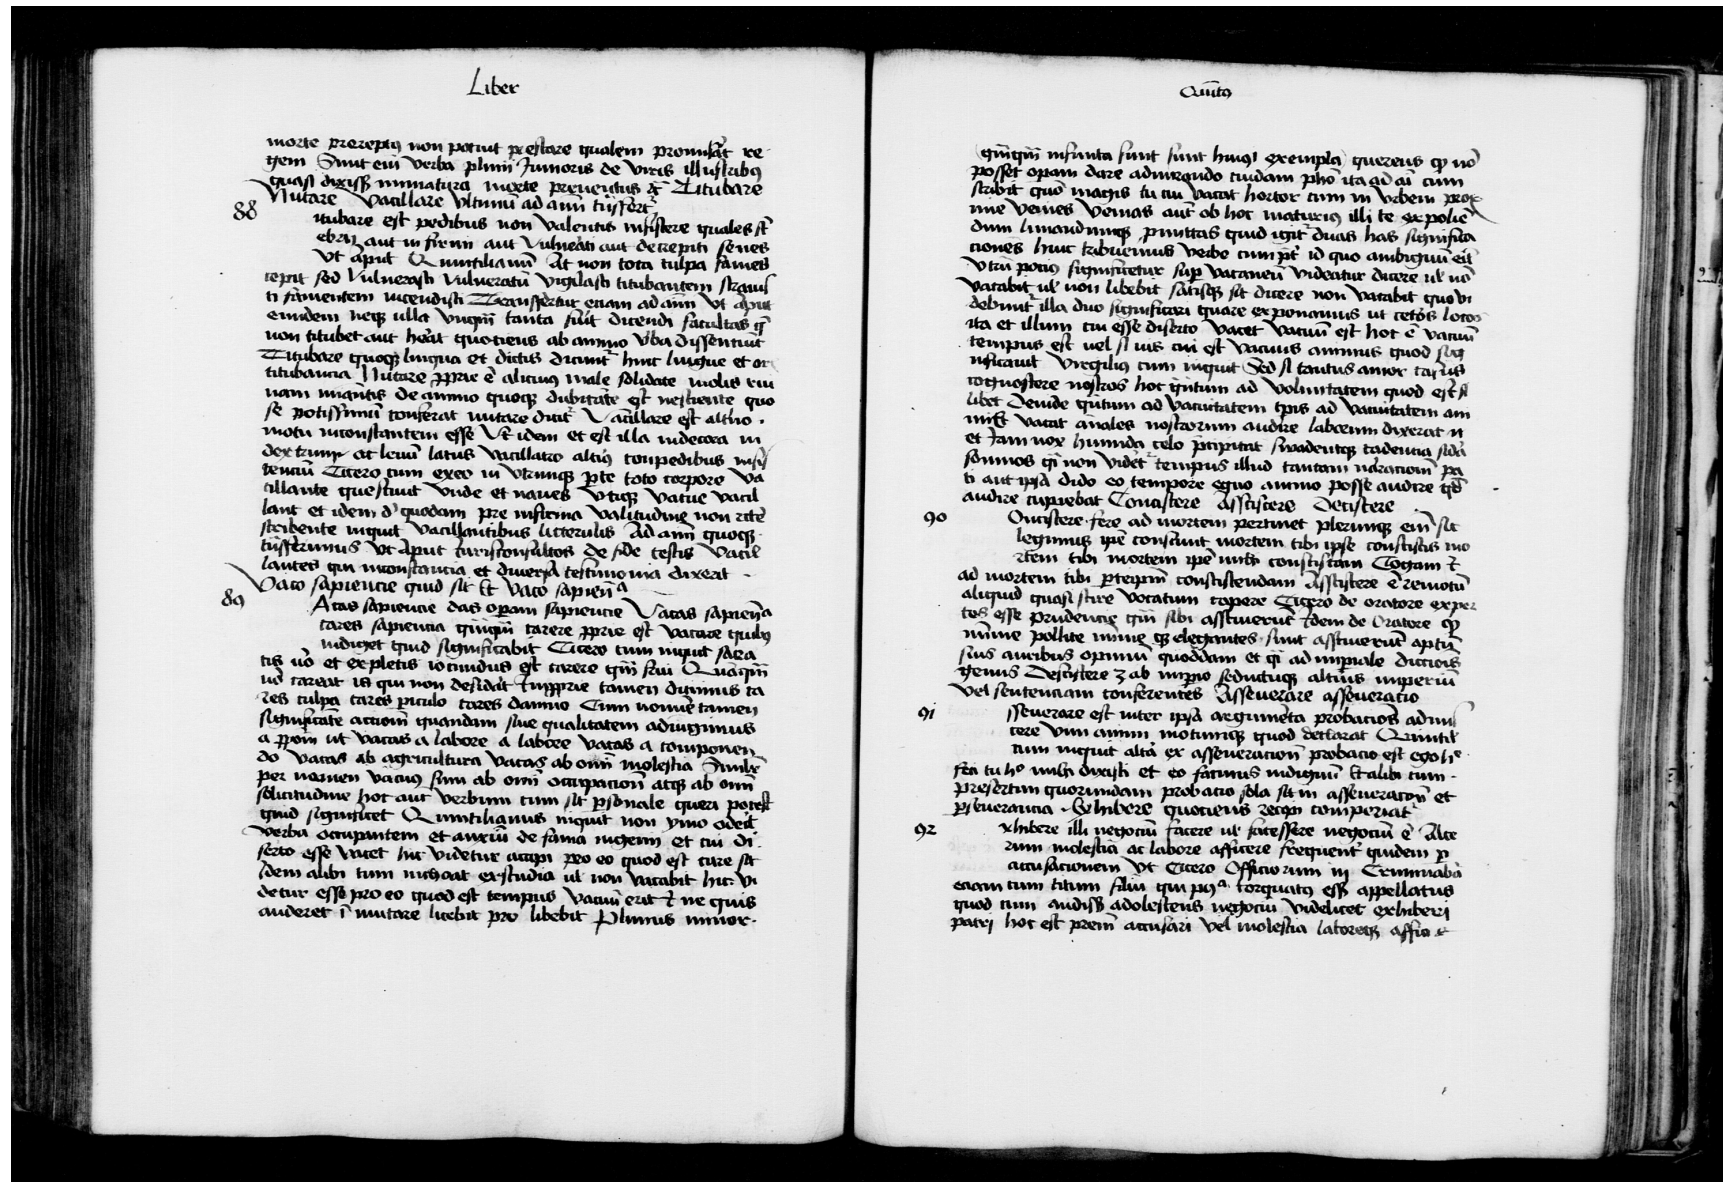 Liber
morte prereptus non potuit prestare qualem promisat̃ re
gem Sunt eiñ verba plinii Iunioris de viris illustribus
quasi dixiss̃ inmatura morte preventus &c̃ Titubare
Nutare vacillare vltimũ ad aim̃ tñsfert̃
88 itubare est pedibus non valentis insistere quales st̃
ebrij aut infirmi aut vulnerãti aut decrepiti senes
vt aput Quintilianũ At non tota culpa fames
cepit sed vulnerasti vulneratũ vigilasti titubantem
ti famentem incendisti Transfertur eciam ad aim̃ vt aput
eumdem neqꝫ ulla vnqm̃ tanta fuit̃ dicendi facultas q̃
non titubet aut hereat̃ quotiens ab animo vba dissentiũt
Titubare quoqꝫ lingua et dictis dicunt̃ hinc lingue et or
titubancia Nutare ꝓprie ẽ alicuius male solidate molis rui
nam minãntis de animo quoqꝫ dubitãte est̃ nesciente quo
se potissimũ conferat nutare dicit̃ Vacillare est altĩo
motu inconstantem esse Vt̃ idem et est illa indecora in
dextrum at levũ latus vacillatio altĩs conpedibus insis
tenciũ Cicero cum exeo in vtrunqꝫ ꝑte toto corpore va
cillante quescivit vnde et naves vtiqꝫ vacue vacil
lant et idem d̃ quodam pre infirma valitudine non rcẽ
scribente inquit vacillantibus litterulis Ad aim̃ quoqꝫ
tñsferimus vt aput Iurisconsultos de fide testis vacil
lantes qui inconstancia et diversa testimonia dixerit
Vaco sapiencie quid sit Et vaco sapienᵃ
89 Acas sapiencie das opam sapiencie Vacas sapienᵃ
cares sapiencia qm̃qm̃ carere ꝓprie est vacare quibus
indiget quid significabit Cicero cum inquit sacia
tis ṽo et expletis iocundius est carere qm̃ frui Quãqm̃
nõ careat is qui non desidat̃ Inꝓprie tamen dicimus ca
res culpa cares piculo cares damno Cum nomine tamen
significãte actionẽ quandam sive qualitatem adiungimus
a ꝓpom̃ ut vacas a labore a labore vacas a componen
do vacas ab agricultura vacas ab om̃i molestia Similr̃
per nomen vacuus sum ab om̃i occupacioñ atqꝫ ab om̃i
solicitudine hoc aut verbum cum sit ꝑsonale queri potest
quid significet Quintilianus inquit non ymo oderit
verba occupantem et anxiũ de fama ingenii et cui di
serto esse vacet hic videtur accipi pro eo quod est cure sit
Idem alibi cum inchoat ex studia ul̃ non vacabit hic vi
detur esse pro eo quod est tempus vacuũ erit Et ne quis
auderet ĩ mutare licebit pro libebit Plinius minor
Quĩtus
qm̃qm̃ infinita sunt sunt huius exempla querens qꝫ nõ
posset opam dare admirando cuidam phõ ita ad aĩ cum
scribit quõ magis tu cui vacat hortor cum in vrbem prox
ime venies venias aut̃ ob hoc maturius illi te expolien
dum limandumqꝫ ꝑmittas quid igit̃ duas has significa
ciones huic tribuemus verbo cum pt̃ id quo ambiguũ est
vtrũ potius significetur supvacaneũ videatur dicere ul̃ nõ
vacabit ul̃ non libebit satisqꝫ sit dicere non vacabit quo vi
debunt̃ illa duo significari quare exponamus ut cetõs locos
ita et illum cui esse diserto vacet vacuũ est hoc ẽ vacuũ
tempus est vel si vis cui est vacuus animus quod sig
nificavit Virgilius cum inquit Sed si tantus amor casus
cognoscere nostros hoc qñtum ad voluntatem quod est si
libet Deinde qñtum ad vacuitatem tp̃is ad vacuitatem ani
mi Et vacat anales nostrorum audire laborum dixerat ñ
et Iam nox humida celo p̃cipitat swadentqꝫ cadencia sida
sonnos qĩ non videt̃ tempus illud tantam naracionẽ pa
ti aut ipsa dido eo tempore equo animo posse audire qd̃
audire cuppiebat Consciscere Assciscere Desciscere
90 Onciscere fere ad mortem pertinet plerunqꝫ eim̃ sic
legimus ipẽ conscivit mortem tibi ipse conscistis mo
rtem tibi mortem ipẽ mihi consciscam Cogam t̃
ad mortem tibi ꝑterpm̃ consciscendam Assciscere ẽ remotũ
aliquid quasi scire vocatum capere Cicero de oratore exper
tes esse prudencie qm̃ sibi assciverũt Idem de Oratore qꝫ
minime pollite minie qꝫ elegantes sunt assciverũt aptũ
suis auribus opimũ quoddam et qĩ ad imperiale dictiois
genus Desciscere ꝫ ab impio seductuqꝫ altĩus imperiũ
vel sentenciam conferentes Asseverare asseveratio
91 sseverare est inter ipsa argumẽta probacionẽs admis
cere vim animi motumqꝫ quod declarat Quintil
cum inquit altã ex asseveracionẽ probacio est ego hᵉ
feci tu hᵉ mihi dixisti et eo facinus indignũ Et alibi cum
presertim quorundam probatio sola sit in asseveracioñ et
ꝑseverancia Exhibere quociens reciꝑ comperiat̃
92 xhibere illi negociũ facere ul̃ facessere negociũ ẽ Alte
rum molestia ac labore afficere frequent̃ quidem ꝑ
accusacionem vt Cicero Officiorum iij Criminabat̃
eciam cum titum filiũ qui pᵒᵃ torquatus ess̃ appellatus
quod cum audiss̃ adolescens negociũ videlicet exhiberi
patri hoc est prem̃ accusari vel molestia laboreqꝫ affici &